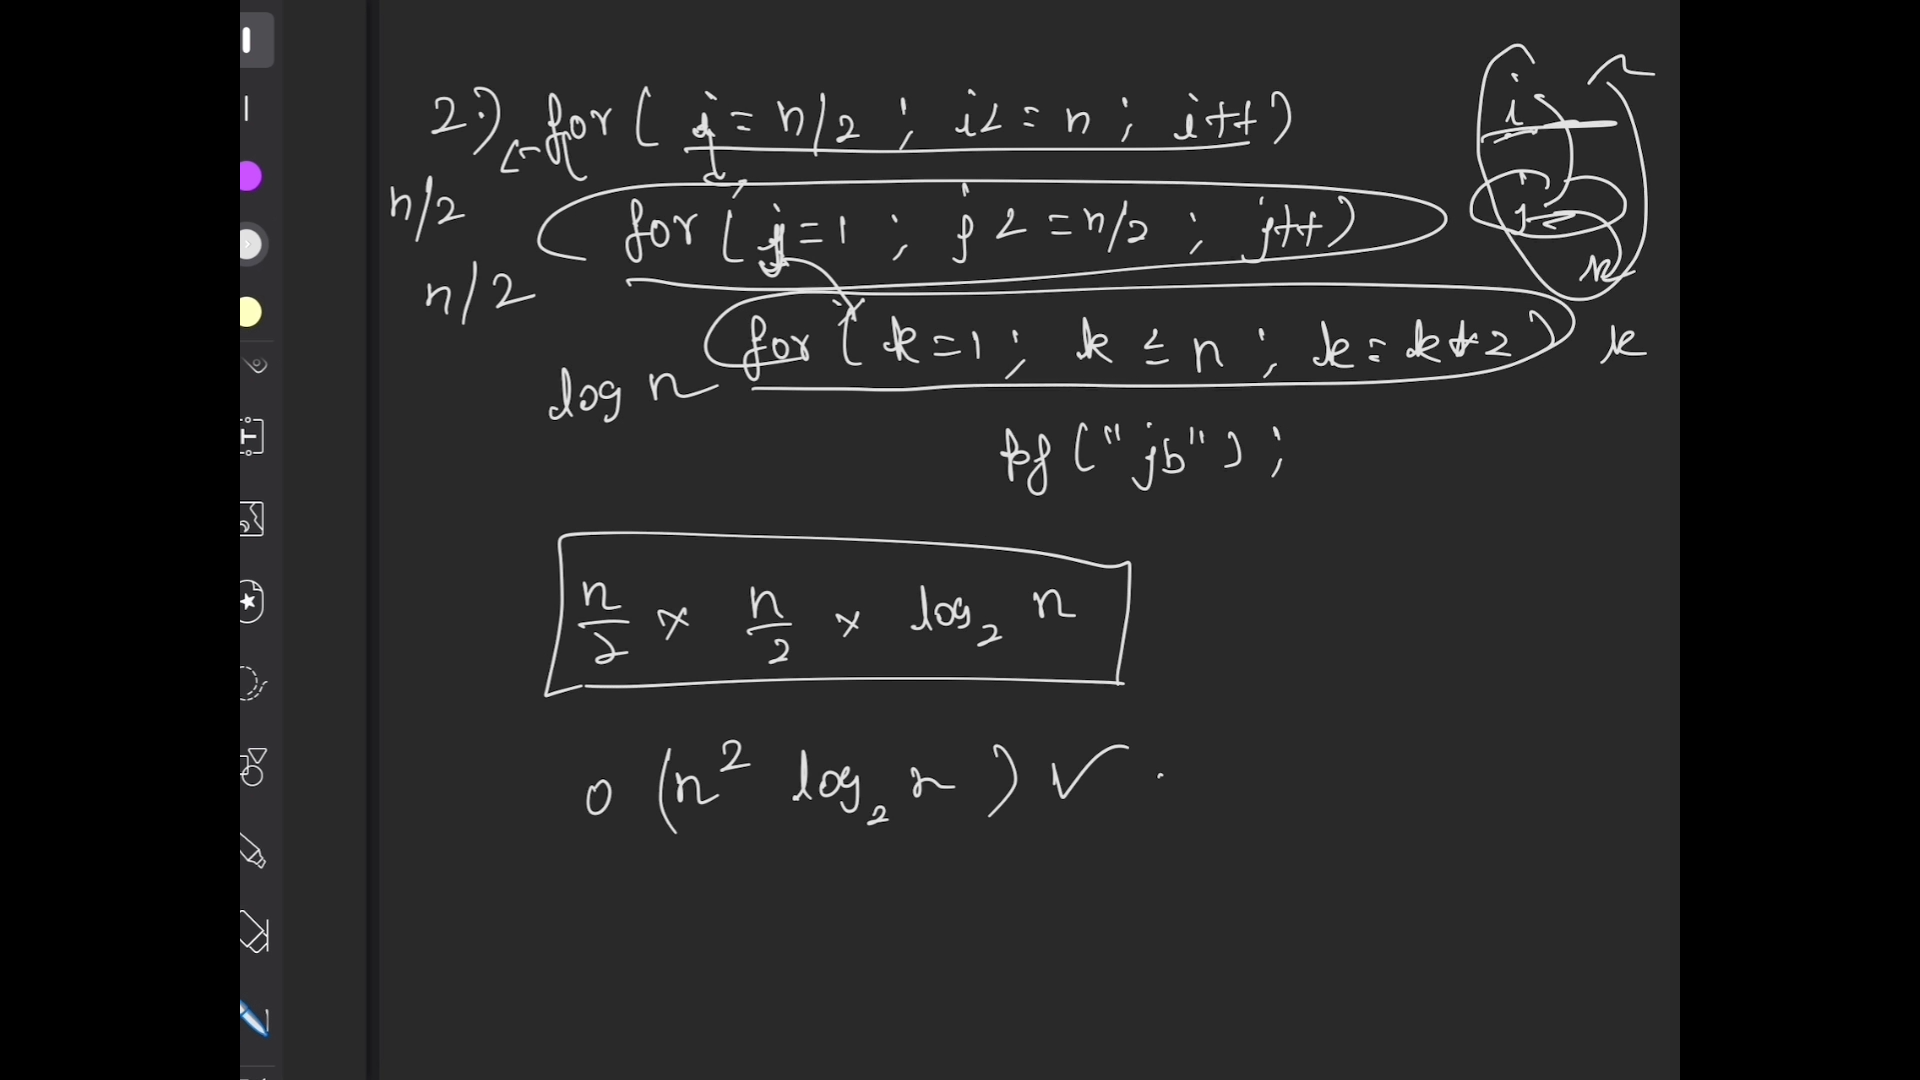 2.) for ( i = n/2 ; i <= n ; i++ )
n/2
for ( j = 1 ; j <= n/2 ; j++ )
n/2
for ( k = 1 ; k ≤ n ; k = k * 2 ) k
log n
pf ( " jb " ) ;
i
j
k
n/2 × n/2 × log₂ n
O ( n² log₂ n ) ✓ .